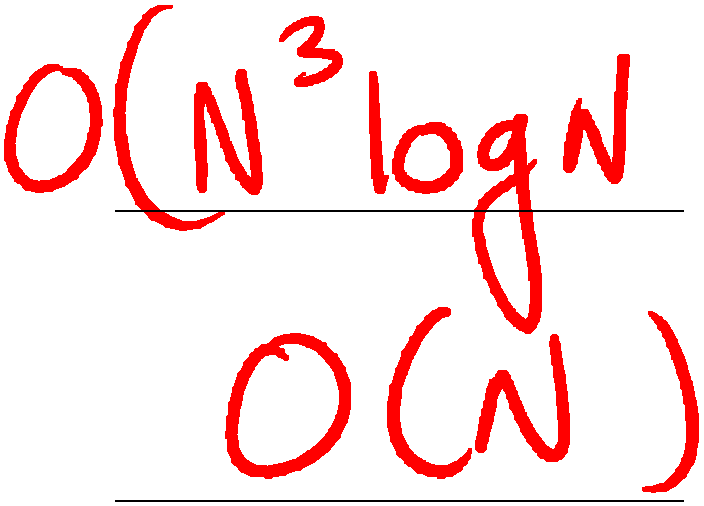 O(N³ log N
O(N)